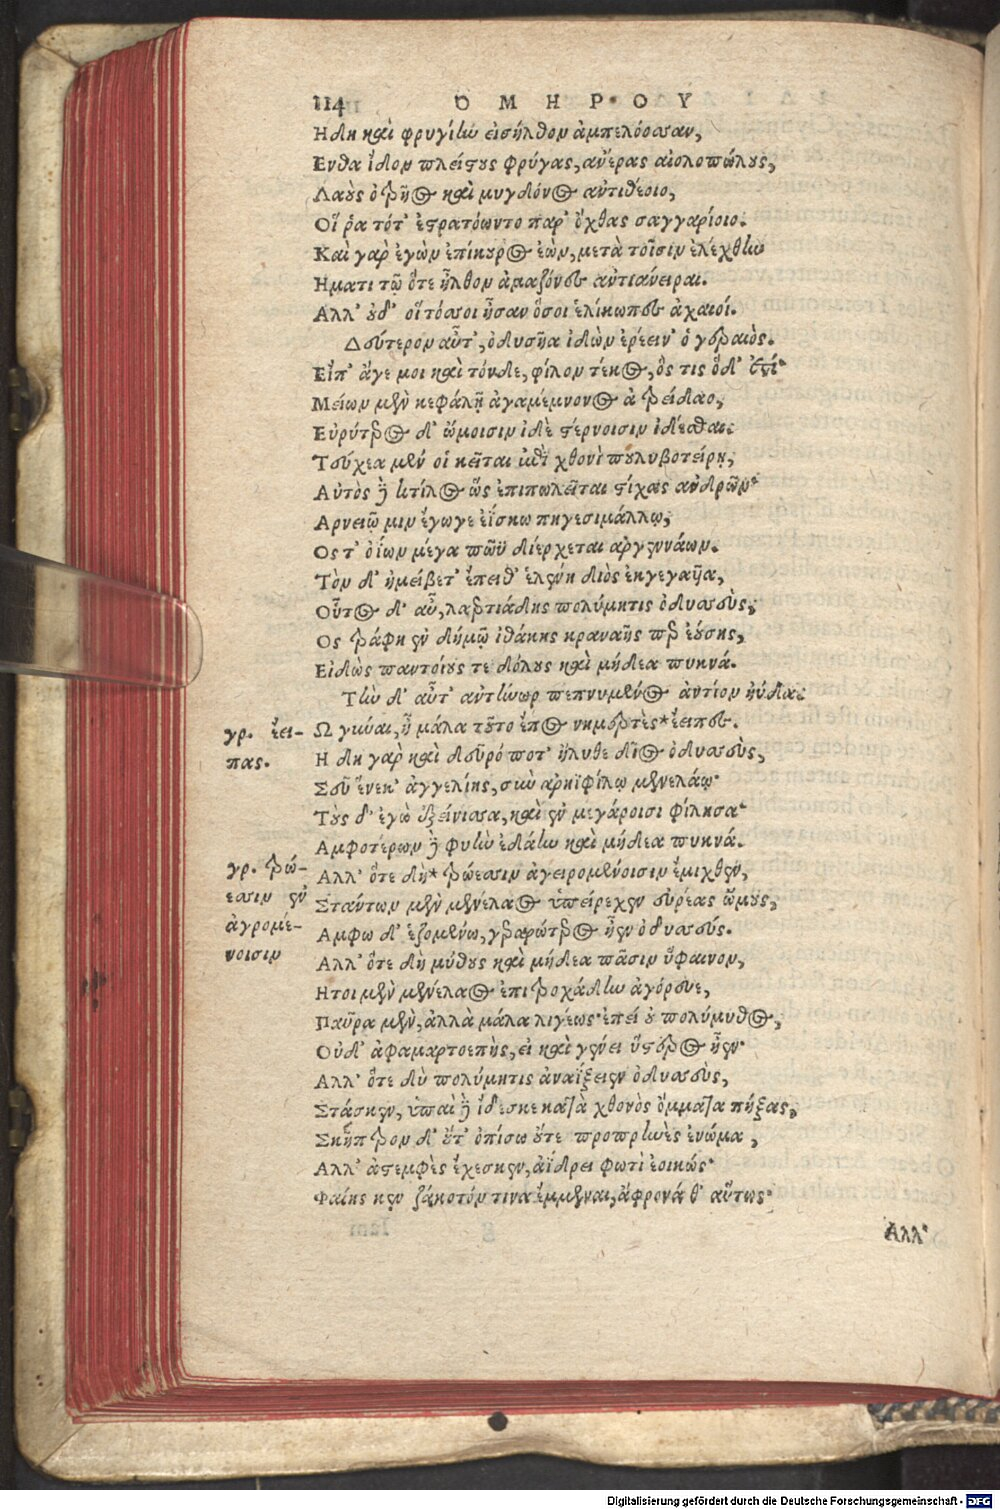 114 ὉΜΗΡΟΥ
Ηδη καὶ φρυγίην εἰσήλθον ἀμπελόεσσαν,
Ενθα ἴδον πλείςους φρύγας, ἀνέρας αἰολοπώλους,
Λαοὺς ὀτρῆος καὶ μυγδόνος ἀντιθέοιο,
Οἵ ῥα τότ' ἐςρατόωντο παρ' ὄχθας σαγγαρίοιο.
Καὶ γὰρ ἐγὼν ἐπίκουρος ἐὼν, μετὰ τοῖσιν ἐλέχθην
Ηματι τῷ ὅτε ἦλθον ἀμαζόνες ἀντιάνειραι.
Αλλ' οὐδ' οἵ τόσοι ἦσαν ὅσοι ἑλίκωπες ἀχαιοί.
Δεύτερον αὖτ', ὀδυσῆα ἰδὼν ἐρέειν' ὁ γεραιὸς.
Εἴπ' ἄγε μοι καὶ τόνδε, φίλον τέκος, ὅς τις ὅδ' ἐςί·
Μείων μὲν κεφάλῃ ἀγαμέμνονος ἀτρείδαο,
Εὐρύτερος δ' ὤμοισιν ἰδὲ ςέρνοισιν ἰδέσθαι.
Τεύχεα μέν οἱ κεῖται ἐπὶ χθονὶ πουλυβοτείρῃ,
Αὐτὸς δὲ κτίλος ὣς ἐπιπωλεῖται ςίχας ἀνδρῶν·
Αρνειῷ μιν ἔγωγε ἐΐσκω πηγεσιμάλλῳ,
Ος τ' ὀΐων μέγα πῶϋ διέρχεται ἀργεννάων.
Τὸν δ' ἠμείβετ' ἔπειθ' ἑλένη διὸς ἐκγεγαῖα,
Οὗτος δ' αὖ, λαερτιάδης πολύμητις ὀδυσσὺς,
Ος τράφη ἐν δήμῳ ἰθάκης κραναῆς περ ἐούσης,
Εἰδὼς παντοίους τε δόλους καὶ μήδεα πυκνά.
Τὴν δ' αὖτ' ἀντήνωρ πεπνυμένος ἀντίον ηὔδα.
γρ. ἔει-
πας.
Ω γύναι, ἦ μάλα τοῦτο ἔπος νημερτὲς* ἔειπες.
Η δη γὰρ καὶ δεῦρό ποτ' ἤλυθε δῖος ὀδυσσὺς,
Σεῦ ἕνεκ' ἀγγελίης, σὺν ἀρηϊφίλῳ μενελάῳ·
Τοὺς δ' ἐγὼ ἐξείνισσα, καὶ ἐν μεγάροισι φίλησα·
Αμφοτέρων δὲ φυὴν ἐδάην καὶ μήδεα πυκνά.
γρ. τρώ-
εσσιν ἐν
ἀγρομέ-
νοισιν
Αλλ' ὅτε δὴ* τρώεσσιν ἀγειρομένοισιν ἔμιχθεν,
Στάντων μὲν μενέλαος ὑπείρεχεν εὐρέας ὤμους,
Αμφω δ' ἑζομένω, γεραρώτερος ἦεν ὀδυσσεύς.
Αλλ' ὅτε δὴ μύθους καὶ μήδεα πᾶσιν ὕφαινον,
Ητοι μὲν μενέλαος ἐπιτροχάδην ἀγόρευε,
Παῦρα μὲν, ἀλλὰ μάλα λιγέως· ἐπεί οὐ πολύμυθος,
Οὐδ' ἀφαμαρτοεπὴς, εἰ καὶ γένει ὕςερος ἦεν·
Αλλ' ὅτε δὺ πολύμητις ἀναΐξειεν ὀδυσσὺς,
Στάσκεν, ὑπαὶ δὲ ἴδεσκε κατὰ χθονὸς ὄμματα πήξας,
Σκῆπτρον δ' οὔτ' ὀπίσω οὔτε προπρηνὲς ἐνώμα,
Αλλ' ἀςεμφὲς ἔχεσκεν, ἀΐδρει φωτὶ ἐοικώς·
Φαίης κεν ζάκοτόν τινα ἔμμεναι, ἄφρονά θ' αὕτως·
Αλλ'
Digitalisierung gefördert durch die Deutsche Forschungsgemeinschaft - DFG